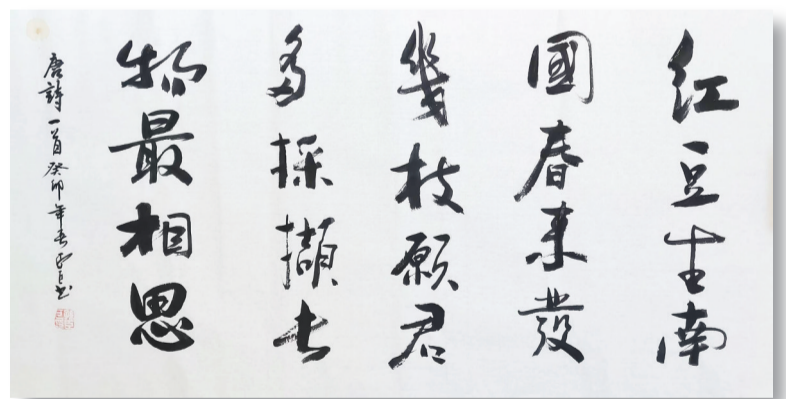 红豆生南
國春来發
幾枝願君
多採擷此
物最相思
唐詩一首癸卯年书